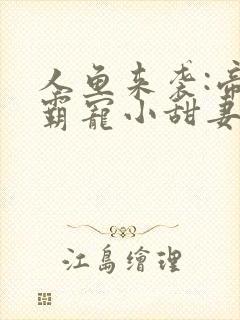 人鱼来袭:帝
霸宠小甜妻
江島繪理